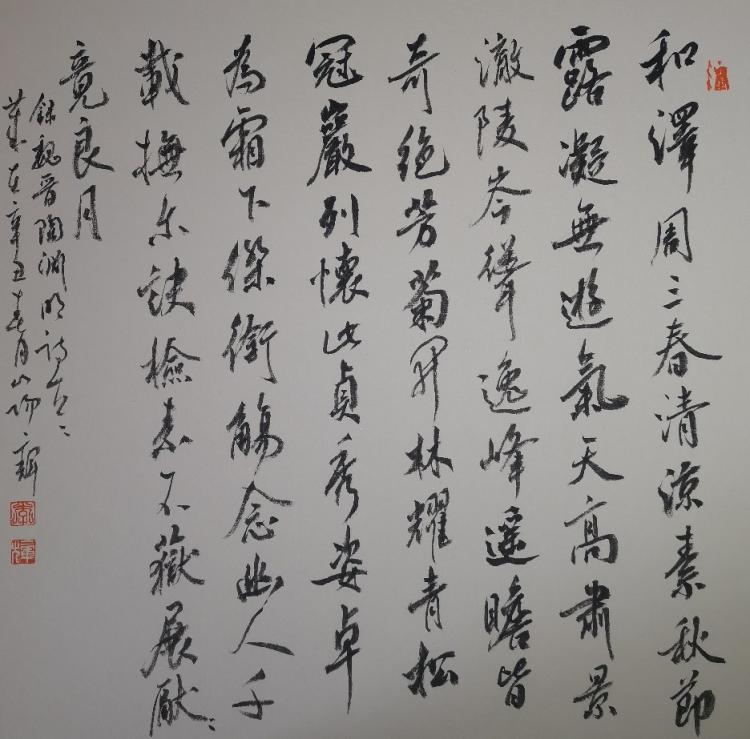 和澤周三春清涼素秋節
露凝無遊氣天高肅景
澈陵岑聳逸峰遥瞻皆
奇絕芳菊開林耀青松
冠巖列懷此貞秀姿卓
為霜下傑銜觴念幽人千
載撫尔訣檢素不獲展厭〻
竟良月
錄魏晉陶淵明詩
歲在辛丑春月山陽